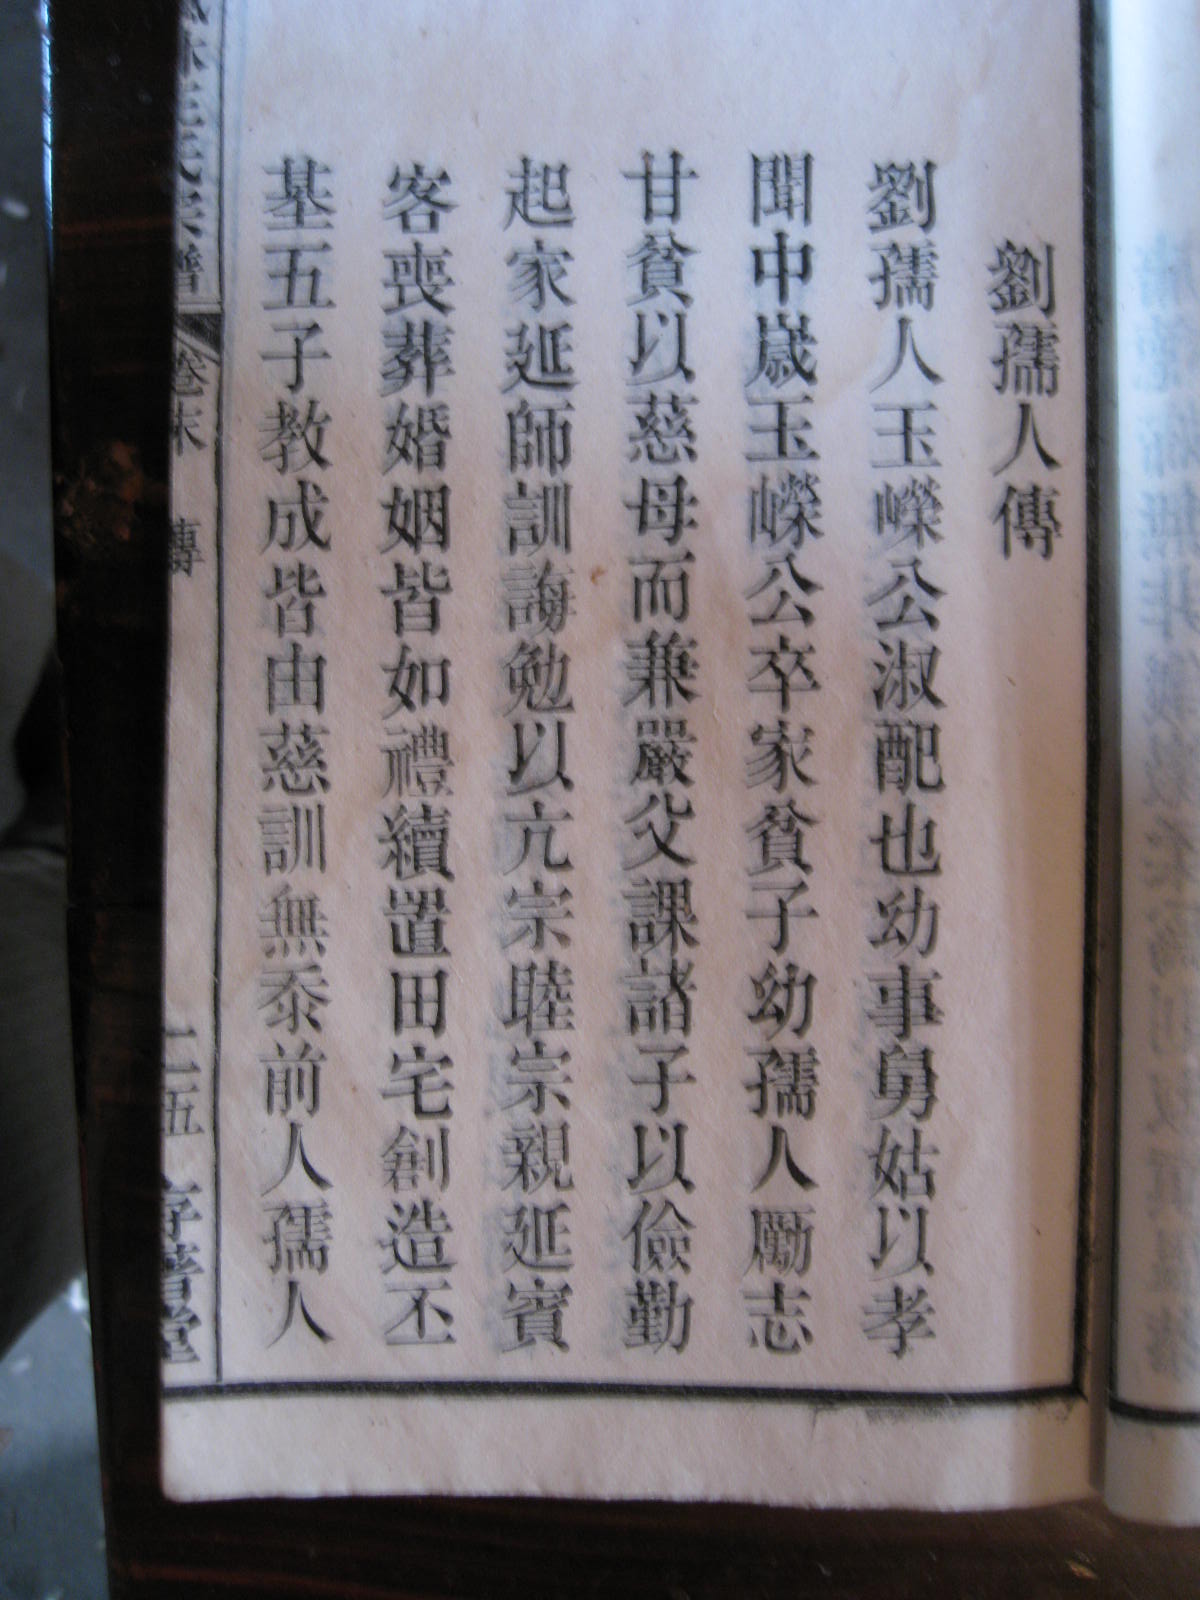 劉孺人傳
劉孺人玉嶸公淑配也幼事舅姑以孝
聞中歲玉嶸公卒家貧子幼孺人勵志
甘貧以慈母而兼嚴父課諸子以儉勤
起家延師訓誨勉以亢宗睦宗親延賓
客喪葬婚姻皆如禮續置田宅創造丕
基五子教成皆由慈訓無忝前人孺人
氏宗譜 卷末 傳